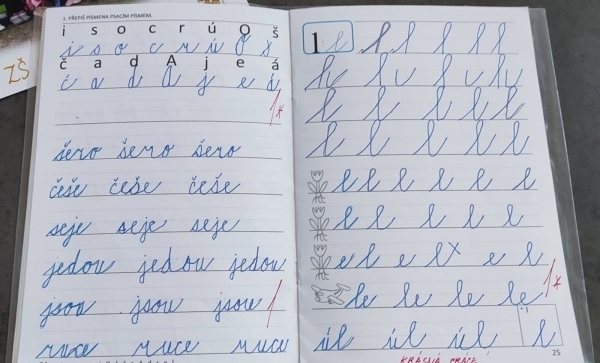 ZŠ
1. PŘEPIŠ PÍSMENA PSACÍM PÍSMEM.
i s o c r ú O š
i s o c r ú O š
č a d A j e á
č a d A j e á
1*
šero šero šero
češe češe češe
seje seje seje
jedou jedou jedou
jsou jsou jsou 1
ruce ruce ruce
1 l l l l l l l
l l l l l
l l l l l l
l l l l l
e l e l x e
le le le le 1*
úl úl úl l
KRÁSNÁ PRÁCE
25